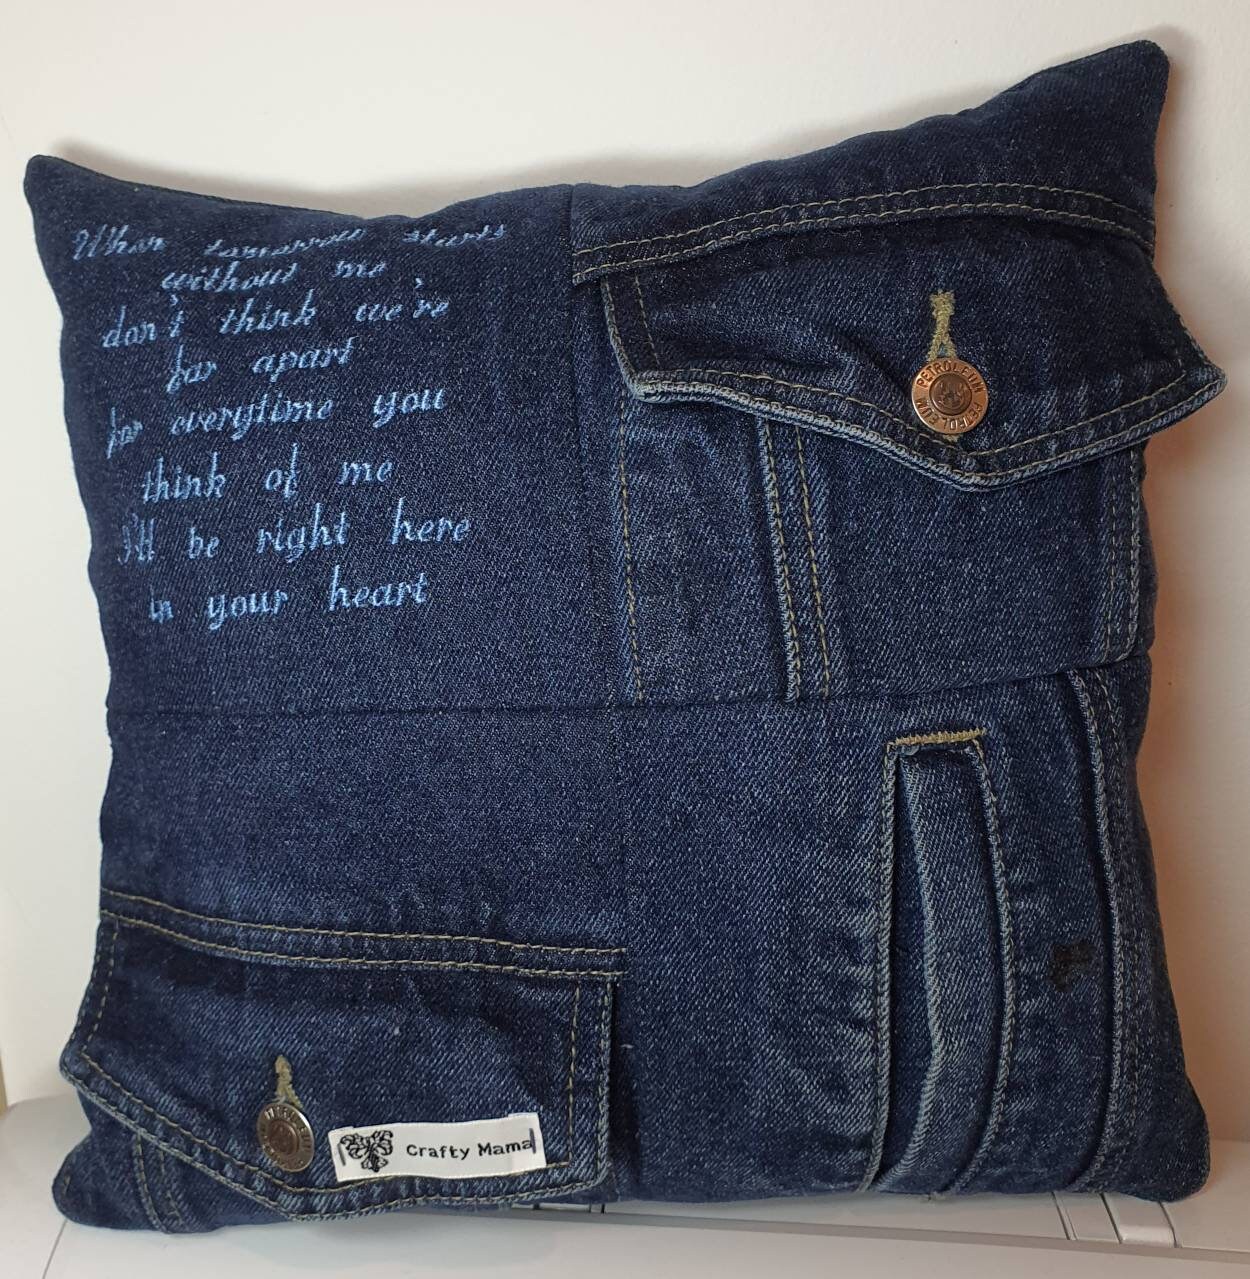 When tomorrow starts
without me
don't think we're
far apart
for everytime you
think of me
I'll be right here
in your heart
PETROLEUM PETROLEUM
PETROLEUM
Crafty Mama